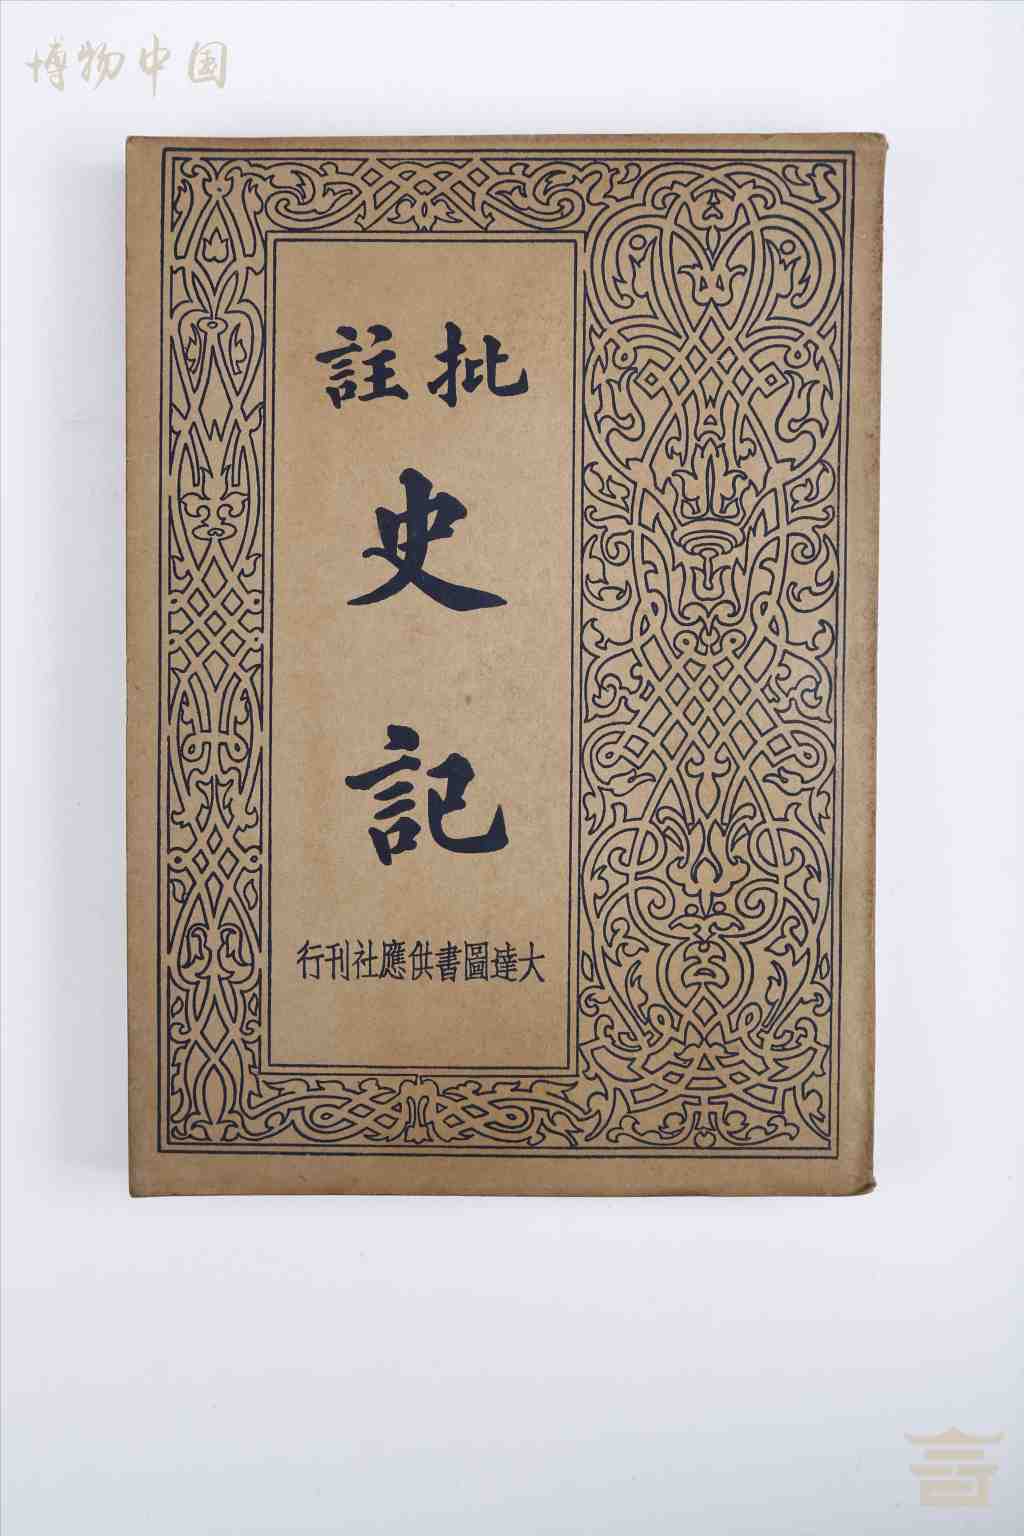 博物中国
批註
史
記
大達圖書供應社刊行